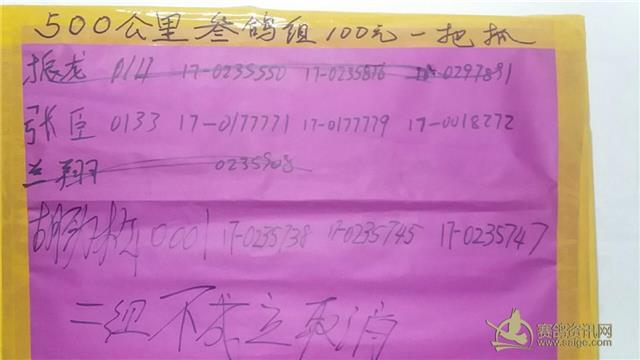 500公里叁鸽组100元一把抓
振龙 0141 17-0235550 17-0235876 17-0297891
张臣 0133 17-0177771 17-0177779 17-0018272
兰翔 0235908
胡劲松 0001 17-0235738 17-0235745 17-0235747
二组不成立取消
赛鸽资讯网
www.saige.com